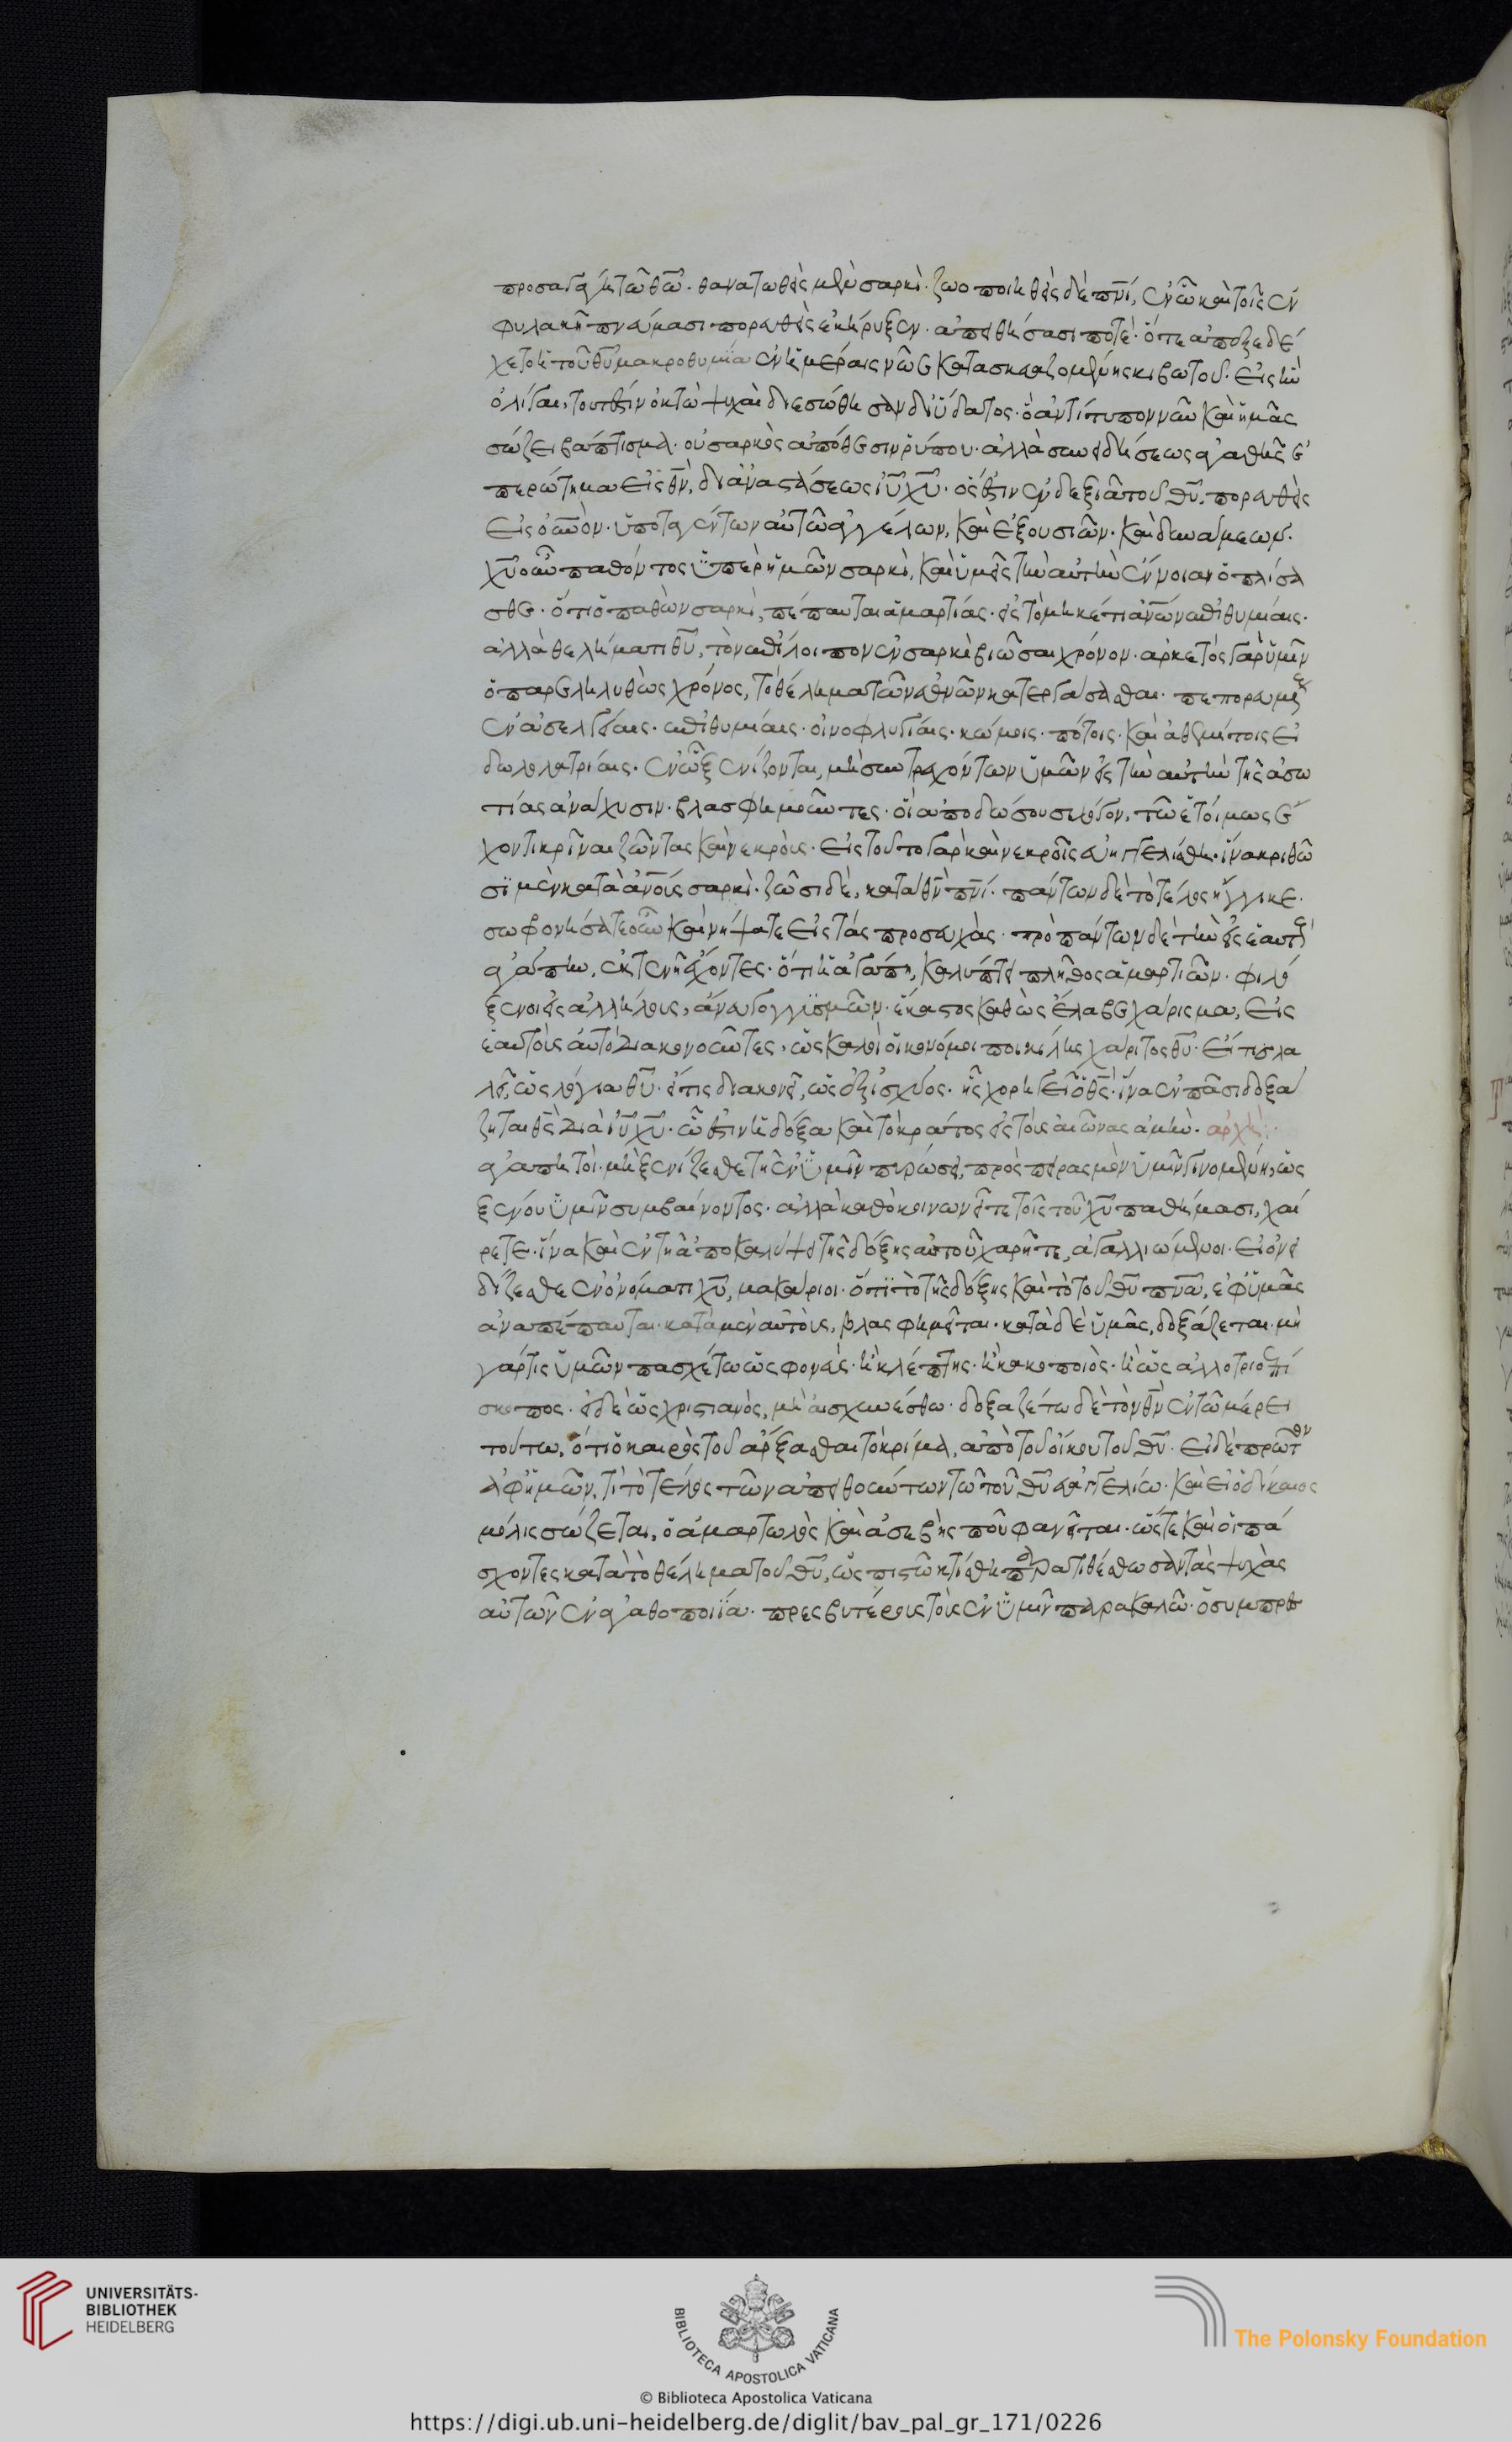 προσαγάγη τῶ θῶ. θανατωθεὶς μὲν σαρκὶ. ζωοποιηθεὶς δὲ πνι, ἐν ὧ καὶ τοῖς ἐν
φυλακῆ πνεύμασι πορευθεὶς ἐκήρυξεν. ἀπειθήσασι ποτέ. ὅτε ἀπεξεδέ
χετο ἡ τοῦ θυ μακροθυμία ἐν ἡμέραις νῶε κατασκευαζομένης κιβωτοῦ. εἰς ἣν
ὀλίγαι, τουτέστιν ὀκτὼ ψυχαὶ διεσώθησαν δι' ὕδατος. ὃ ἀντίτυπον νῦν καὶ ἡμᾶς
σώζει βάπτισμα. οὐ σαρκὸς ἀπόθεσιν ῥύπου. ἀλλὰ συνειδήσεως ἀγαθῆς ἐ
περώτημα εἰς θν, δι' ἀναστάσεως ιυ χυ. ὅς ἐστιν ἐν δεξιᾶ τοῦ θυ. πορευθεὶς
εἰς οὐνον. ὑποταγέντων αὐτῶ ἀγγέλων, καὶ ἐξουσιῶν. καὶ δυνάμεων.
χυ οὖν παθόντος ὑπὲρ ἡμῶν σαρκὶ, καὶ ὑμεῖς τὴν αὐτὴν ἔννοιαν ὁπλίσα
σθε. ὅτι ὁ παθὼν σαρκὶ, πέπαυται ἁμαρτίας. εἰς τὸ μηκέτι ἀνων ἐπιθυμίαις.
ἀλλὰ θελήματι θυ, τὸν ἐπίλοιπον ἐν σαρκὶ βιῶσαι χρόνον. ἀρκετὸς γὰρ ὑμῖν
ὁ παρεληλυθὼς χρόνος, τὸ θέλημα τῶν ἐθνῶν κατεργάσασθαι. πεπορευμέ
ἐν ἀσελγείαις. ἐπιθυμίαις. οἰνοφλυγίαις. κώμοις. πότοις. καὶ ἀθεμίτοις εἰ
δωλολατρίαις. ἐν ὧ ξενίζονται, μὴ συντρεχόντων ὑμῶν εἰς τὴν αὐτὴν τῆς ἀσω
τίας ἀνάχυσιν. βλασφημοῦντες. οἳ ἀποδώσουσι λόγον, τῶ ἑτοίμως ἔ
χοντι κρῖναι ζῶντας καὶ νεκρούς. εἰς τοῦτο γὰρ καὶ νεκροῖς εὐηγγελίσθη. ἵνα κριθῶ
σι μὲν κατὰ ἀνους σαρκὶ. ζῶσι δὲ, κατὰ θν πνι. πάντων δὲ τὸ τέλος ἤγγικε.
σωφρονήσατε οὖν καὶ νήψατε εἰς τὰς προσευχὰς. πρὸ πάντων δὲ τὴν εἰς ἑαυτ
ἀγάπην, ἐκτενῆ ἔχοντες. ὅτι ἡ ἀγάπη, καλύπτει πλῆθος ἁμαρτιῶν. φιλό
ξενοι εἰς ἀλλήλους, ἄνευ γογγισμῶν. ἕκαστος καθὼς ἔλαβε χάρισμα, εἰς
ἑαυτοὺς αὐτὸ διακονοῦντες, ὡς καλοὶ οἰκονόμοι ποικίλης χάριτος θυ. εἴ τις λα
λεῖ, ὡς λόγια θυ. εἴ τις διακονεῖ, ὡς ἐξ ἰσχύος. ἧς χορηγεῖ ὁ θς. ἵνα ἐν πᾶσι δοξά
ζηται θς διὰ ιυ χυ. ὧ ἐστιν ἡ δόξα καὶ τὸ κράτος εἰς τοὺς αἰῶνας ἀμήν. ἀρχὴ:
ἀγαπητοὶ. μὴ ξενίζεσθε τῆ ἐν ὑμῖν πυρώσει, πρὸς πειρασμὸν ὑμῖν γινομένη, ὡς
ξένου ὑμῖν συμβαίνοντος. ἀλλὰ καθὸ κοινωνεῖτε τοῖς τοῦ χυ παθήμασι, χαί
ρετε. ἵνα καὶ ἐν τῆ ἀποκαλύψει τῆς δόξης αὐτοῦ χαρῆτε, ἀγαλλιώμενοι. εἰ ὀνει
δίζεσθε ἐν ὀνόματι χυ, μακάριοι. ὅτι τὸ τῆς δόξης καὶ τὸ τοῦ θυ πνα, ἐφ' ὑμᾶς
ἀναπέπαυται. κατὰ μὲν αὐτοὺς, βλασφημεῖται. κατὰ δὲ ὑμᾶς, δοξάζεται. μὴ
γάρ τις ὑμῶν πασχέτω ὡς φονεὺς. ἢ κλέπτης. ἢ κακοποιὸς. ἢ ὡς ἀλλοτριοεπί
σκοπος. εἰ δὲ ὡς χριστιανὸς, μὴ αἰσχυνέσθω. δοξαζέτω δὲ τὸν θν ἐν τῶ μέρει
τούτω, ὅτι ὁ καιρὸς τοῦ ἄρξασθαι τὸ κρίμα, ἀπὸ τοῦ οἴκου τοῦ θυ. εἰ δὲ πρῶτον
ἀφ' ἡμῶν, τί τὸ τέλος τῶν ἀπειθούντων τῶ τοῦ θυ εὐαγγελίω. καὶ εἰ ὁ δίκαιος
μόλις σώζεται, ὁ ἁμαρτωλὸς καὶ ἀσεβὴς ποῦ φανεῖται. ὥστε καὶ οἱ πά
σχοντες κατὰ τὸ θέλημα τοῦ θυ, ὡς πιστῶ κτίστη παρατιθέσθωσαν τὰς ψυχὰς
αὐτῶν ἐν ἀγαθοποιία. πρεσβυτέρους τοὺς ἐν ὑμῖν παρακαλῶ. ὁ συμπρε
UNIVERSITÄTS-
BIBLIOTHEK
HEIDELBERG
BIBLIOTECA APOSTOLICA VATICANA
© Biblioteca Apostolica Vaticana
The Polonsky Foundation
https://digi.ub.uni-heidelberg.de/diglit/bav_pal_gr_171/0226